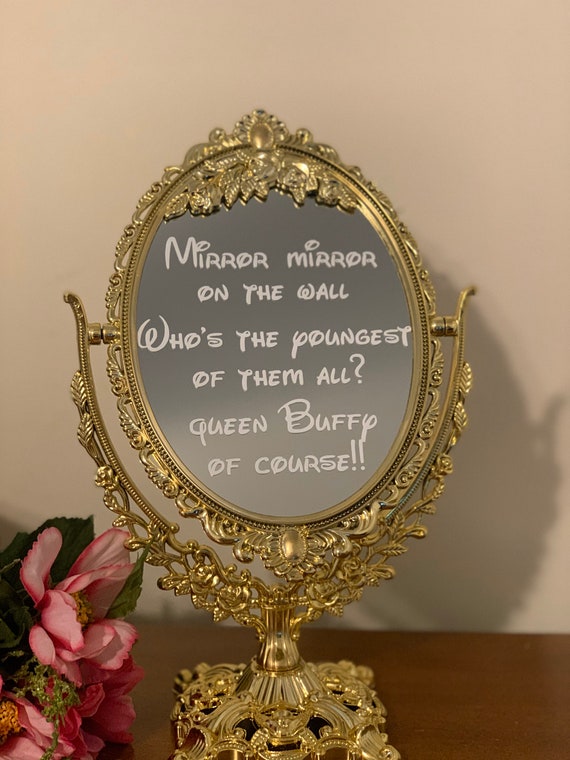 Mirror mirror
on the wall
Who's the youngest
of them all?
queen Buffy
of course!!